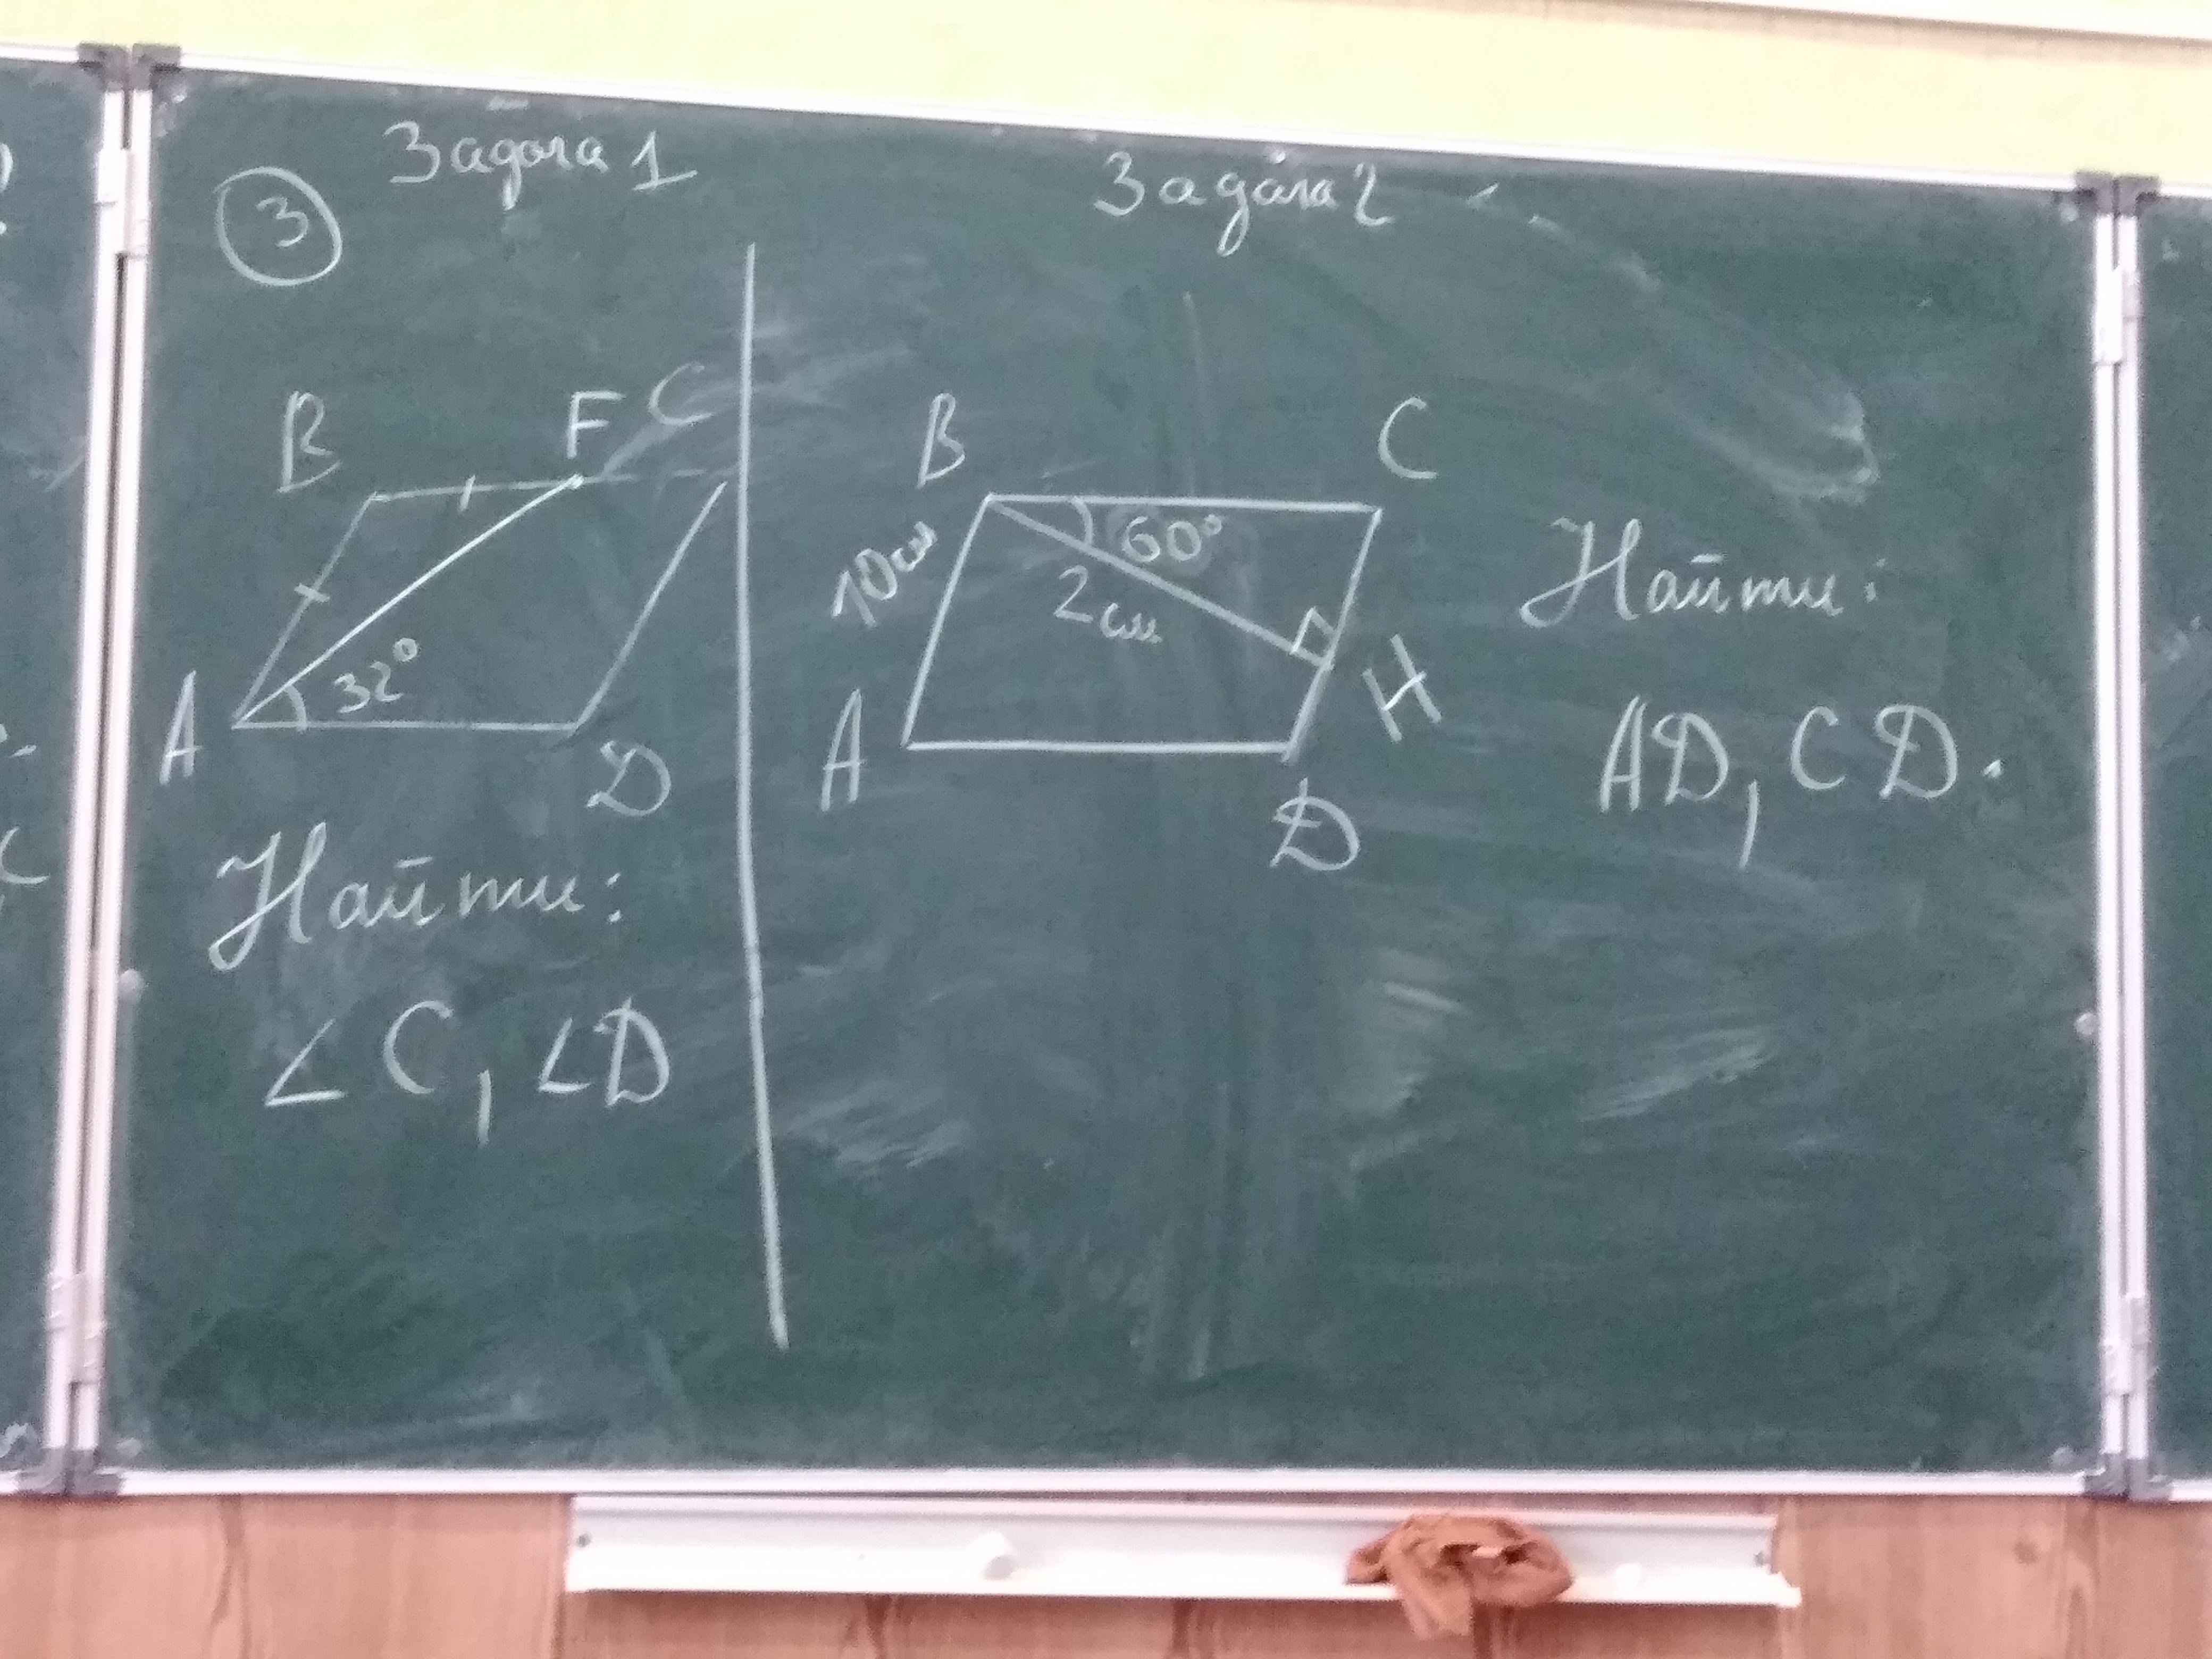 3
Задача 1
B
F
C
32°
A
D
Найти:
∠C, ∠D
Задача 2
B
C
10 см
60°
2 см
H
A
D
Найти:
AD, CD.